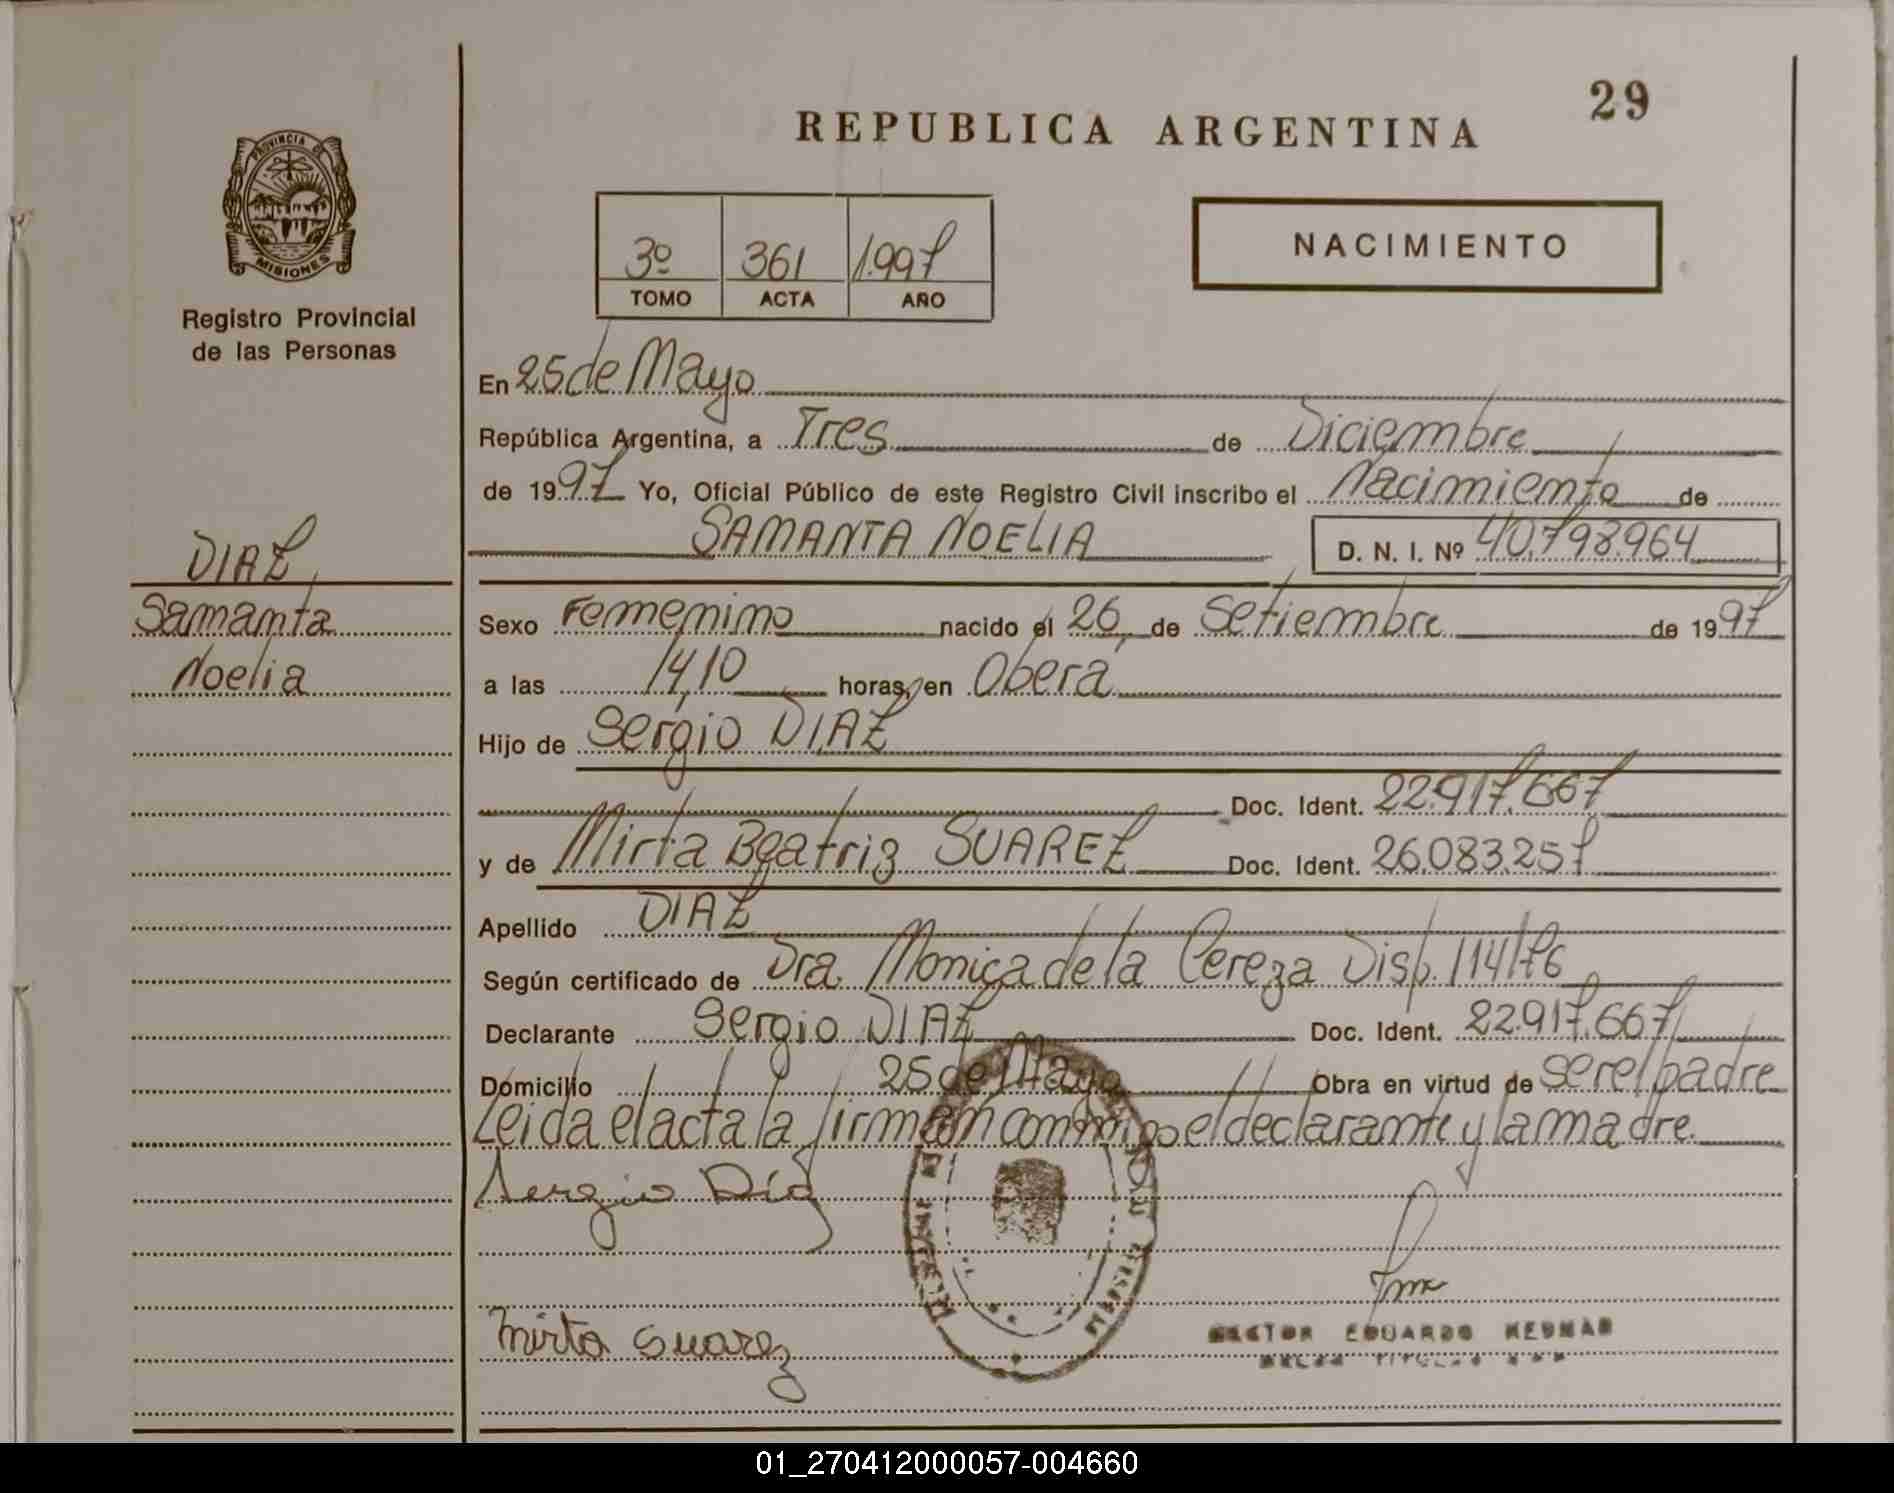 29
REPUBLICA ARGENTINA
PROVINCIA DE
MISIONES
Registro Provincial
de las Personas
3º 361 1.997
TOMO ACTA AÑO
NACIMIENTO
En 25 de Mayo
República Argentina, a Tres de Diciembre
de 1997 Yo, Oficial Público de este Registro Civil inscribo el Nacimiento de
SAMANTA NOELIA D. N. I. Nº 40.798.964
DIAZ
Samanta
Noelia
Sexo Femenino nacido el 26 de Setiembre de 1997
a las 14,10 horas, en Oberá
Hijo de Sergio DIAZ
Doc. Ident. 22.917.667
y de Mirta Beatriz SUAREZ Doc. Ident. 26.083.257
Apellido DIAZ
Según certificado de Dra. Monica de la Cereza Disp. 114/76
Declarante Sergio DIAZ Doc. Ident. 22.917.667
Domicilio 25 de Mayo Obra en virtud de ser el padre
Leida el acta la firman conmigo el declarante y la madre.
Sergio Díaz
Mirta Suarez
HECTOR EDUARDO
01_270412000057-004660